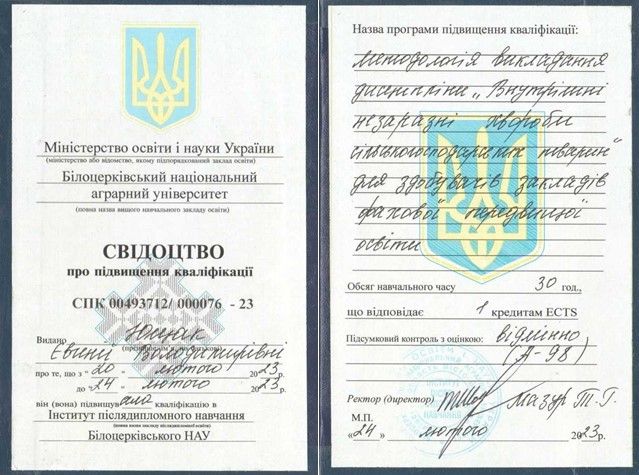 Міністерство освіти і науки України
(міністерство або відомство, якому підпорядкований заклад освіти)
Білоцерківський національний
аграрний університет
(повна назва вищого навчального закладу освіти)
СВІДОЦТВО
про підвищення кваліфікації
СПК 00493712/ 000076 - 23
Видано Ющак
Євгенії Володимирівні
про те, що з "20" лютого 2023р.
до "24" лютого 2023р.
він (вона) підвищувала кваліфікацію в
Інститут післядипломного навчання
(повна назва закладу післядипломної освіти)
Білоцерківського НАУ
Назва програми підвищення кваліфікації:
методологія викладання
дисципліни „Внутрішні
незаразні хвороби
сільськогосподарських тварин"
для здобувачів закладів
фахової передвищої
освіти
Обсяг навчального часу 30 год.,
що відповідає 1 кредитам ECTS
Підсумковий контроль з оцінкою: відмінно
(А-98)
Ректор (директор) Мазур Т.Г.
М.П.
«24» лютого 2023р.